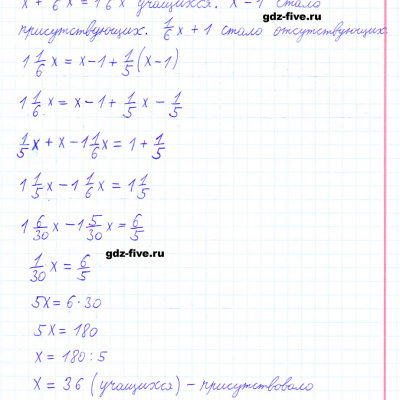 x + 1/6 x = 1 1/6 x учащихся. x - 1 стало
gdz-five.ru
присутствующих. 1/6 x + 1 стало отсутствующих.
1 1/6 x = x - 1 + 1/5 (x - 1)
1 1/6 x = x - 1 + 1/5 x - 1/5
1/5 x + x - 1 1/6 x = 1 + 1/5
1 1/5 x - 1 1/6 x = 1 1/5
1 6/30 x - 1 5/30 x = 6/5
gdz-five.ru
1/30 x = 6/5
5x = 6 · 30
5x = 180
x = 180 : 5
x = 36 (учащихся) - присутствовало